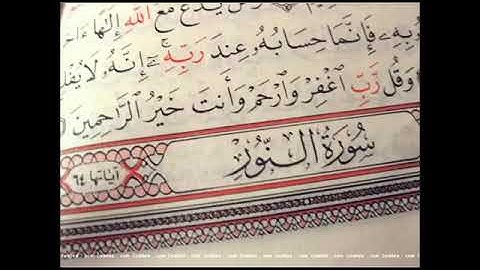 يدع مع الله إلها
فَإِنَّمَا حِسَابُهُ عِندَ رَبِّهِ إِنَّهُ لَا
وَقُل رَّبِّ اغْفِرْ وَارْحَمْ وَأَنتَ خَيْرُ الرَّاحِمِينَ
سُورَةُ النُّورِ
آياتها ٦٤